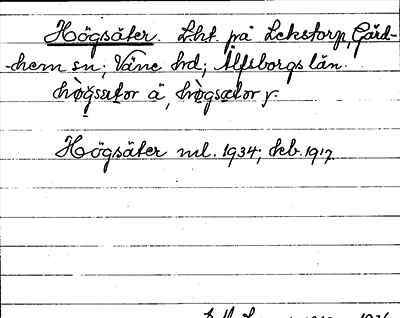 Högsäter. Lht. på Lekstorp, Gärd-
-hem sn; Väne hd; Älfsborgs län.
hògsater ä, hògsæter y.
Högsäter ml. 1934; kb. 1917.